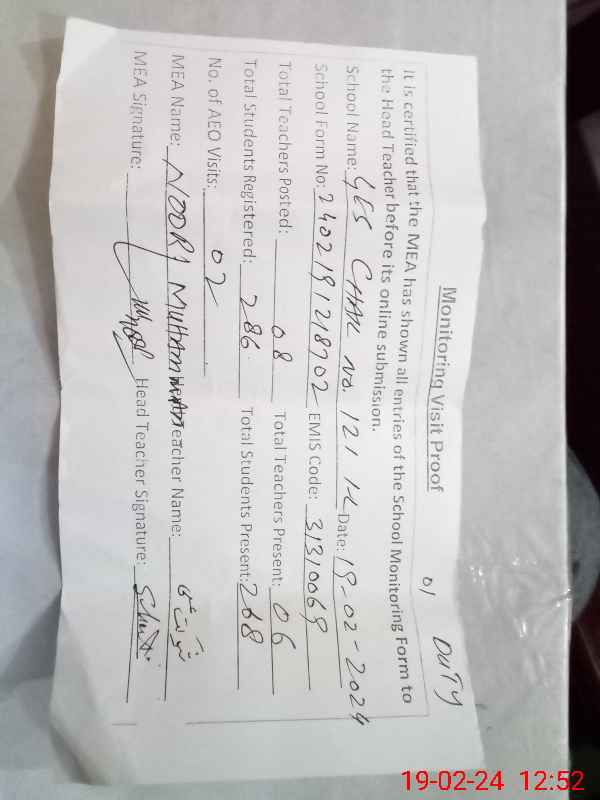 Monitoring Visit Proof
01 DUTY
It is certified that the MEA has shown all entries of the School Monitoring Form to
the Head Teacher before its online submission.
School Name: GES CHAK No. 121 1-L Date: 19-02-2024
School Form No: 2402191218702 EMIS Code: 31310069
Total Teachers Posted: 08 Total Teachers Present: 06
Total Students Registered: 286 Total Students Present: 268
No. of AEO Visits: 02
MEA Name: NOOR MUHAMMAD Head Teacher Name:
MEA Signature: Head Teacher Signature:
19-02-24 12:52